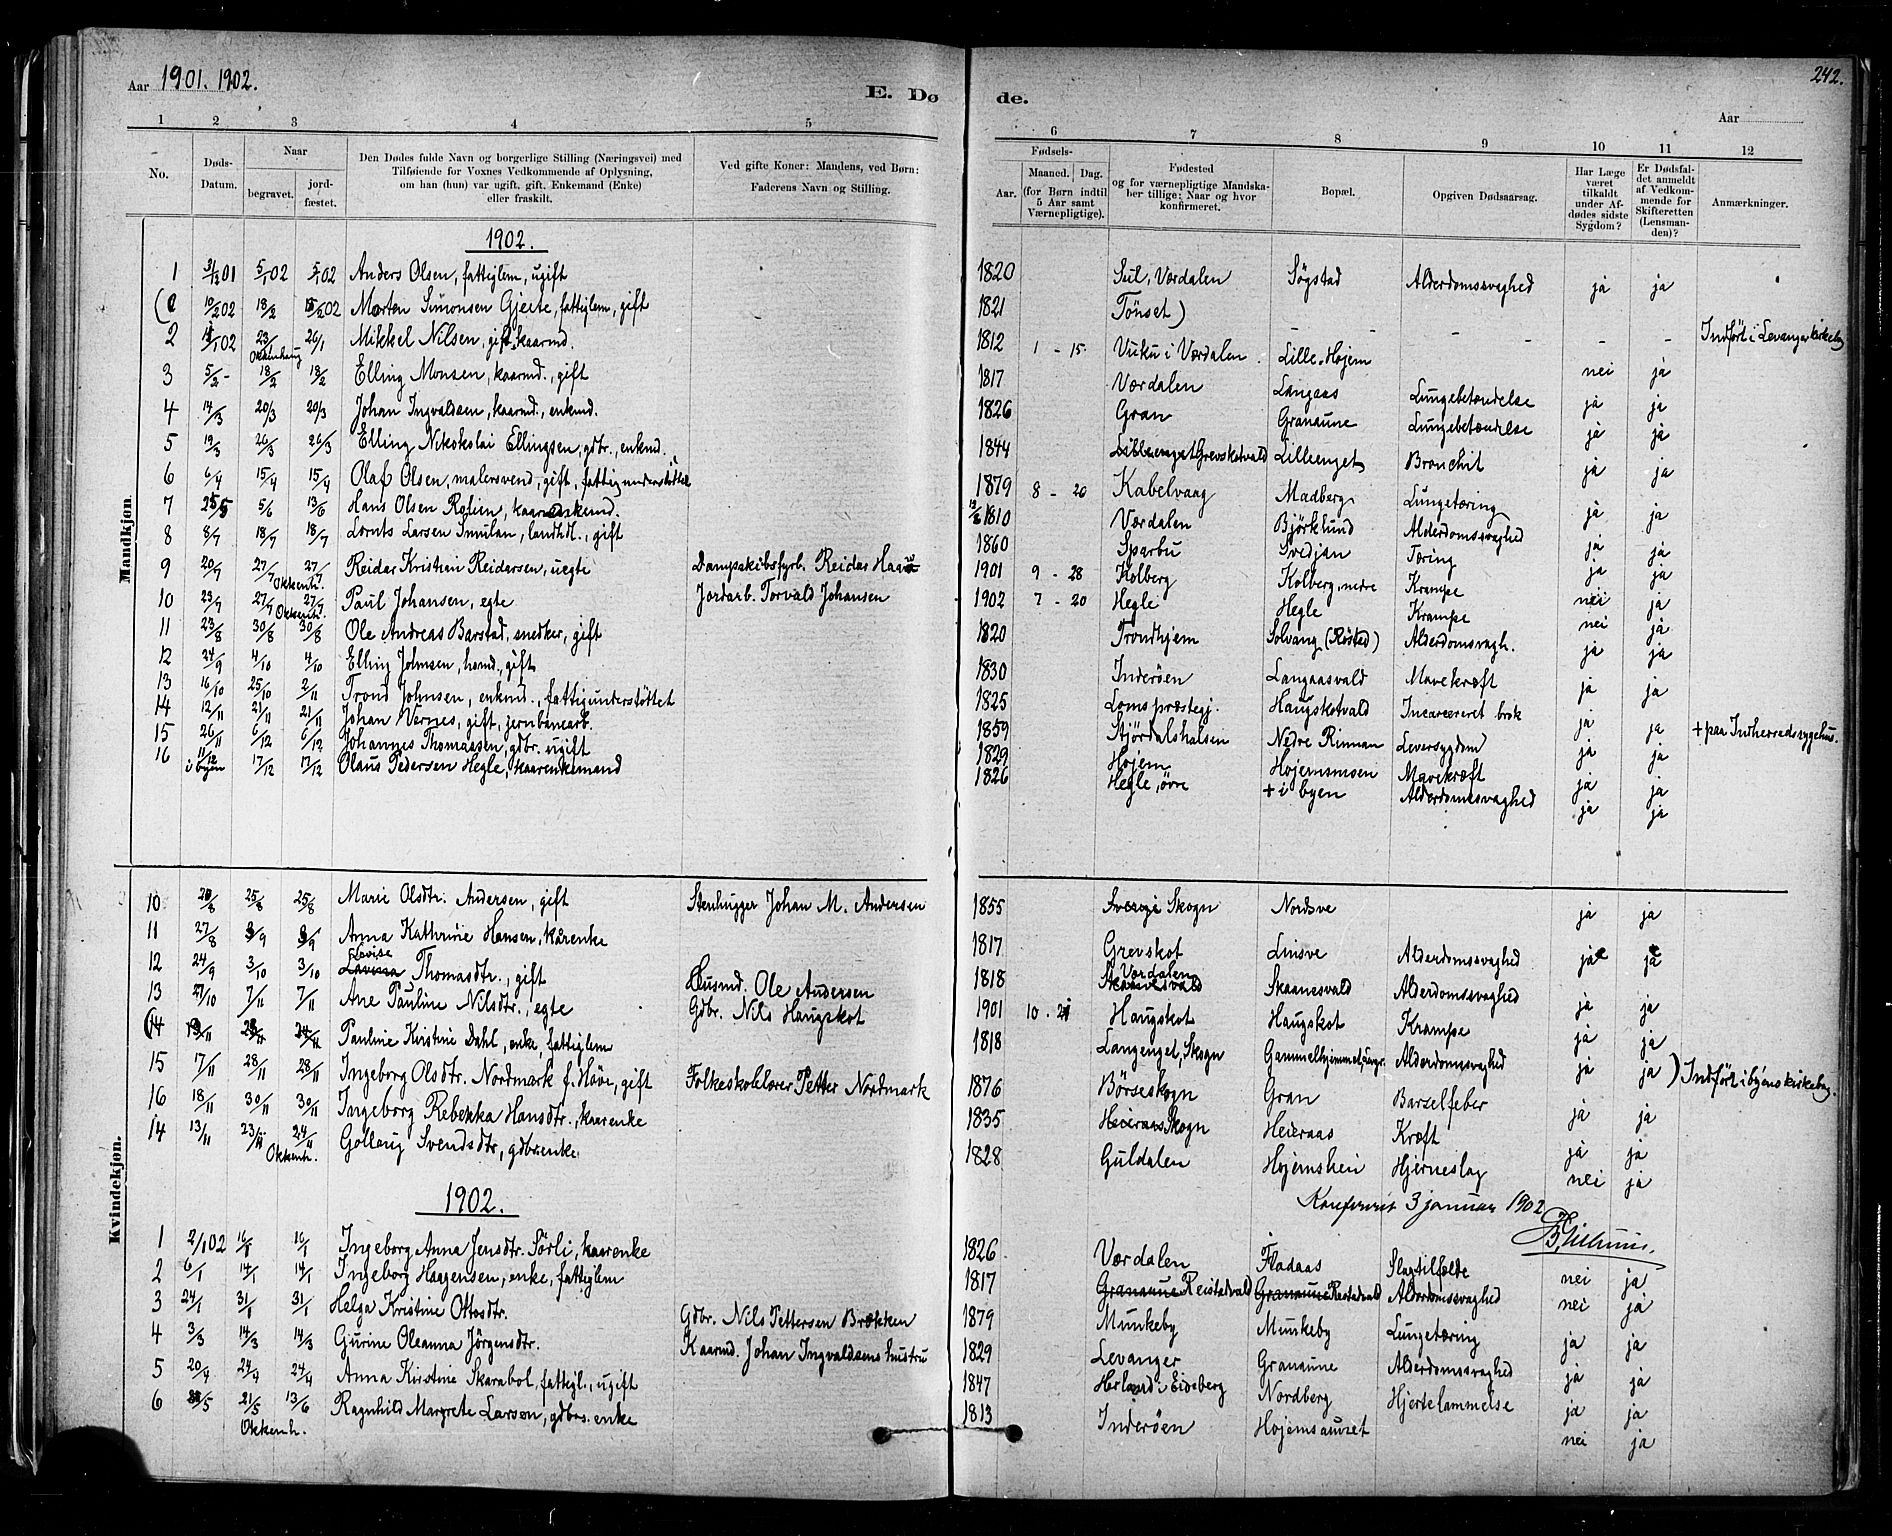 Aar 1901. 1902.
E. Dø
de.
242.
Aar
1 2 3 4 5 6 7 8 9 10 11 12
No.
Døds-Datum.
Naar
begravet.
jord-fæstet.
Den Dødes fulde Navn og borgerlige Stilling (Næringsvei) med
Tilføiende for Voxnes Vedkommende af Oplysning,
om han (hun) var ugift, gift, Enkemand (Enke)
eller fraskilt.
Ved gifte Koner: Mandens, ved Børn:
Faderens Navn og Stilling.
Fødsels-
Aar.
Maaned. Dag.
(for Børn indtil
5 Aar samt
Værnepligtige).
Fødested
og for værnepligtige Mandska-
ber tillige: Naar og hvor
konfirmeret.
Bopæl.
Opgiven Dødsaarsag.
Har Læge
været
tilkaldt
under Af-
dødes sidste
Sygdom?
Er Dødsfal-
det anmeldt
af Vedkom-
mende for
Skifteretten
(Lensman-
den)?
Anmærkninger.
Mandkjøn.
1902.
1 31/12 01 5/1 02 5/1 02 Anders Olsen, fattiglem, ugift 1820 Sul, Værdalen Søgstad Alderdomssvaghed ja ja
( 10/2 02 18/2 18/2 02 Morten Simonsen Gjeite, fattiglem, gift 1821 Tönset) - - - - - Indført i Levanger kirkebog
2 23/1 26/1 Mikkel Nilsen, gift, kaarmd. 1812 1 - 15 Vuku i Værdalen Lille Hojem nei ja
Okkenhaug
3 5/2 - 18/2 18/2 Elling Monsen, kaarmd., gift 1817 Værdalen Langaas Lungebetændelse ja ja
4 14/3 20/3 20/3 Johan Ingvaldsen, kaarmd., enkmd. 1826 Gran Granaune Lungebetændelse ja ja
5 19/3 26/3 26/3 Elling Nikokolai Ellingsen, gdbr., enkmd. 1844 Lilleenget Grevskotvald Lilleenget Bronchit ja ja
6 6/4 15/4 15/4 Olaf Olsen, malersvend, gift, fattigunderstöttet 1879 8 - 20 Kabelvaag Madberg Lungetæring ja ja
7 25/5 5/6 13/6 Hans Olsen, kaarenskemd. 12/2 1810 Værdalen Björklund Alderdomssvaghed ja ja
8 8/7 18/7 18/7 Lornts Larsen, landhdl., gift 1860 Sparbu Svedjan Tæring ja ja
9 20/7 27/7 27/7 Reidar Kristian Reidarsen, uegte Dampskibsfyrb. Reidar 1901 9 - 28 Kolberg Kolberg, nedre Krampe nei ja
Okkenh.
10 23/7 27/7 27/7 Paul Johansen, egte Jordarb. Torvald Johansen 1902 7 - 20 Hegle Hegle Krampe nei ja
Okkenh.
11 23/8 30/8 30/8 Ole Andreas Barstad, snedker, gift 1820 Trondhjem Solvang (Röstad) Alderdomsvagh. ja ja
12 24/9 4/10 4/10 Elling Johnsen, hsmd., gift 1830 Inderöen Langaasvald Mavekræft ja ja
13 16/10 25/10 2/11 Trond Johnsen, enkmd., fattigunderstöttet 1825 Loms præstegj. Haugskotvald Incarcereret brok ja ja
14 12/11 21/11 21/11 Johan Vernes, gift, jernbanearb. 1859 Stjördalshalsen Nedre Rinnan Leversygdom ja ja + paa Indherredssygehus.
15 26/11 6/12 6/12 Johannes Thomassen, gdbr. ugift 1829 Hojem Hojemsmoen Mavekræft ja ja
16 11/12 17/12 17/12 Olaus Pedersen Hegle, kaarenkemand 1826 Hegle, övre + i byen Alderdomssvaghed ja ja
i byen
Kvindekjøn.
10 20/8 25/8 25/8 Marie Olsdtr. Andersen, gift Stenhugger Johan M. Andersen 1855 Sverige Skogn Nordsve ja ja
11 27/8 8/9 8/9 Anna Kathrine Hansen, kårenke 1817 Grevskot Linsve Alderdomssvaghed ja ja
Lovise
12 24/9 3/10 3/10 Lavina Thomasdtr., gift Husmd. Ole Andersen 1818 Værdalen Skaanesvald Skaanesvald Alderdomssvaghed ja ja
13 27/10 7/11 7/11 Ane Pauline Nilsdtr., egte Gdbr. Nils Haugskot 1901 10 - 21 Haugskot Haugskot Krampe ja ja
(14 24/11 Pauline Kristine Dahl, enke, fattiglem 1818 Langenget, Skogn Gammelhjemmet, Alderdomssvaghed ja ja ) Indført i byens kirkebog.
15 17/11 28/11 28/11 Ingeborg Olsdtr. Nordmark f. Höve, gift Folkeskolelærer Petter Nordmark 1876 Börseskogn Gran Barselfeber ja ja
16 18/11 30/11 30/11 Ingeborg Rebekka Hansdtr., kaarenke 1835 Heieraas Skogn Heieraas Kræft ja ja
14 13/11 23/11 24/11 Gollaug Svendsdtr, gdbrenke 1828 Guldalen Hojemshei Hjerneslag nei ja
Okkenh.
Konfereret 3 januar 1902
1902.
1 2/1 02 16/1 16/1 Ingeborg Anna Jensdtr. Sörli, kaarenke 1826 Værdalen Fladaas Slagtilfælde nei ja
2 6/1 14/1 14/1 Ingeborg Haagensen, enke, fattiglem 1817 Granaune Reistadvald Granaune Reistadvald Alderdomssvaghed nei ja
3 24/1 31/1 31/1 Helga Kristine Ottosdtr. Gdbr. Nils Pettersen Brækken 1879 Munkeby Munkeby Lungetæring ja ja
4 3/3 14/3 14/3 Gurine Oleanna Jörgensdtr. Kaarmd. Johan Ingvaldsens hustru 1829 Levanger Granaune Alderdomssvaghed ja ja
5 20/4 24/4 24/4 Anna Kirstine Skarabol, fattigl., ugift 1847 Herland i Eidsberg Nordberg Hjertelammelse ja ja
6 21/5 13/6 Ragnhild Margrete Larsen, gdbrs. enke 1813 Inderöen Hojemsaunet nei ja
Okkenh.